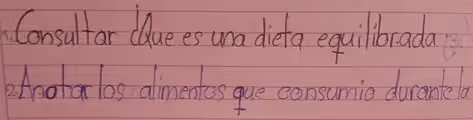 1. Consultar ¿Que es una dieta equilibrada
2. Anotar los alimentos que consumio durante la